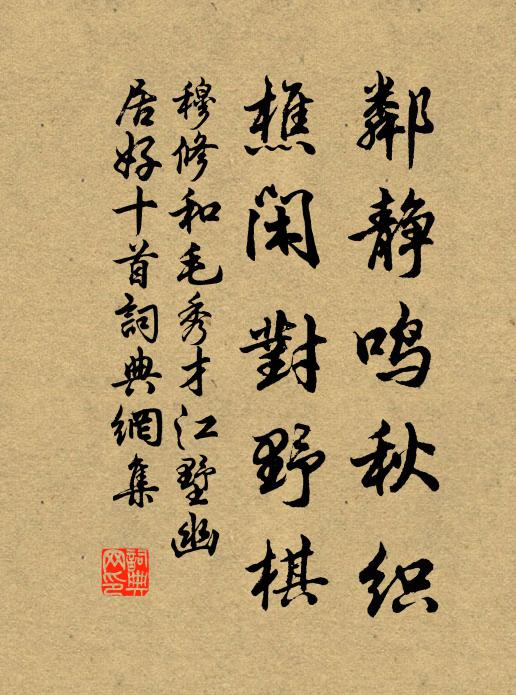 鄰静鸣秋织
樵闲對野棋
穆修和毛秀才江墅幽
居好十首詞典網集
詞典网印